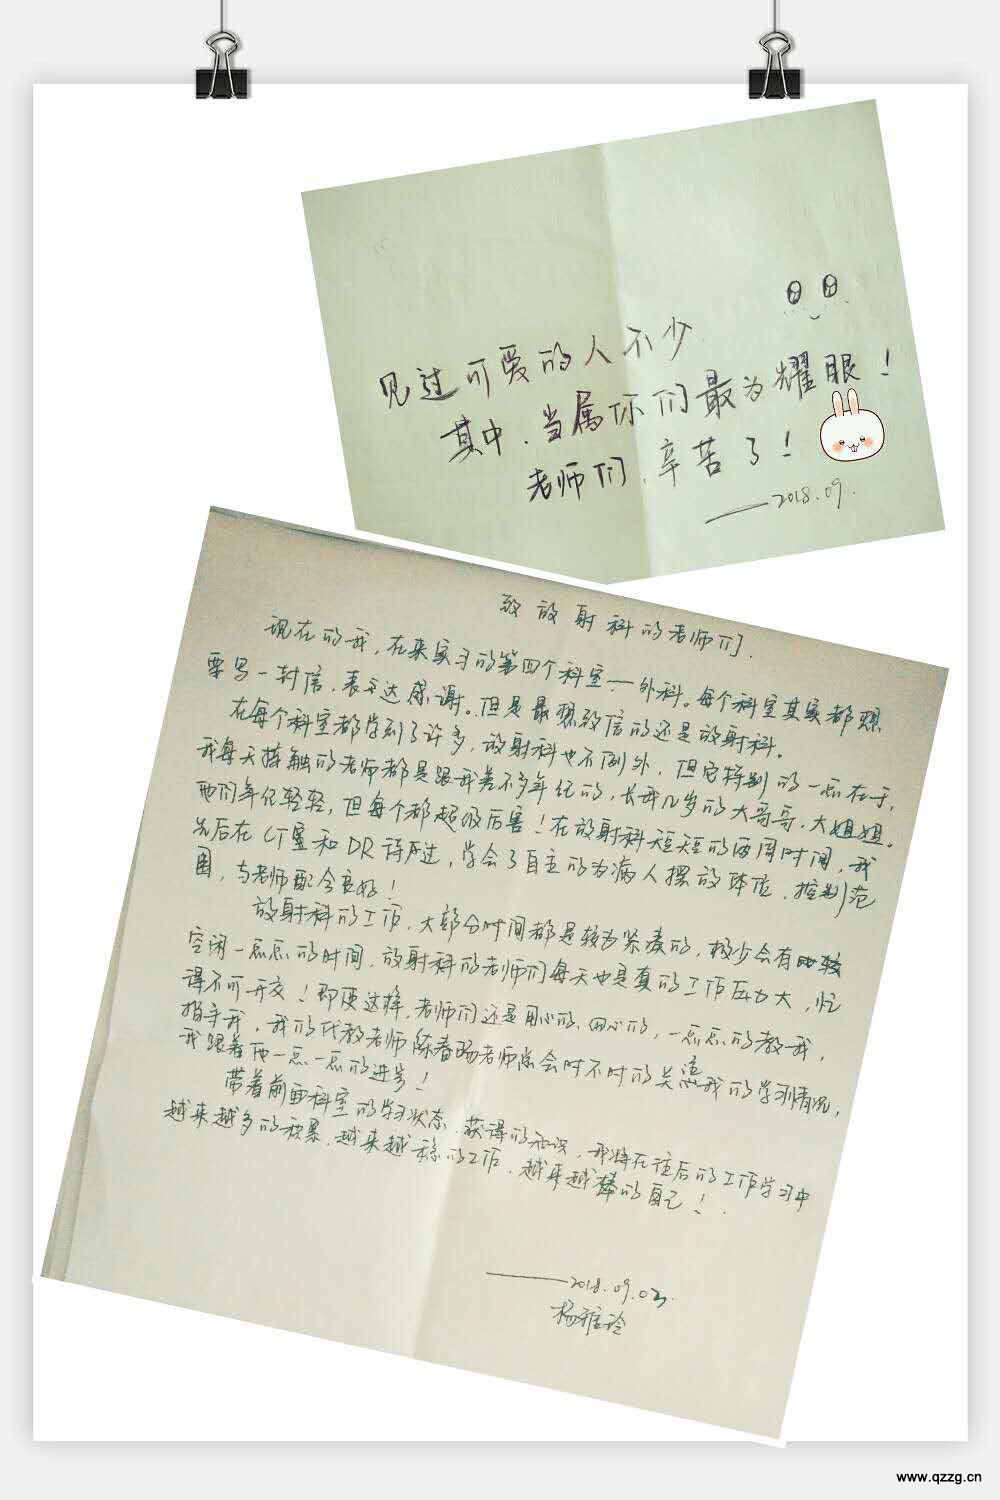 见过可爱的人不少
其中,当属你们最为耀眼!
老师们,辛苦了!
——2018.09.
致放射科的老师们.
现在的我,在来实习的第四个科室——外科。每个科室其实都想
要写一封信,表示达感谢。但是最想致信的还是放射科。
在每个科室都学到了许多,放射科也不例外,但它特别的一点在于,
我每天接触的老师都是跟我差不多年纪的,长我几岁的大哥哥、大姐姐。
他们年纪轻轻,但每个都超级厉害!在放射科短短的两周时间,我
先后在CT室和DR待过,学会了自主的为病人摆放体位、控制范
围,与老师配合良好!
放射科的工作,大部分时间都是较为紧凑的,极少会有比较
空闲一点点的时间,放射科的老师们每天也是真的工作压力大,忙
得不可开交!即使这样,老师们还是用心的、用心的,一点点的教我,
指导我,我的代教老师陈春旸老师总会时不时的关注我的学习情况,
我跟着他一点一点的进步!
带着前面科室的学习状态、获得的知识,我将在往后的工作学习中
越来越多的积累,越来越稳的工作,越来越棒的自己!.
——2018.09.02.
杨雅玲
www.qzzg.cn